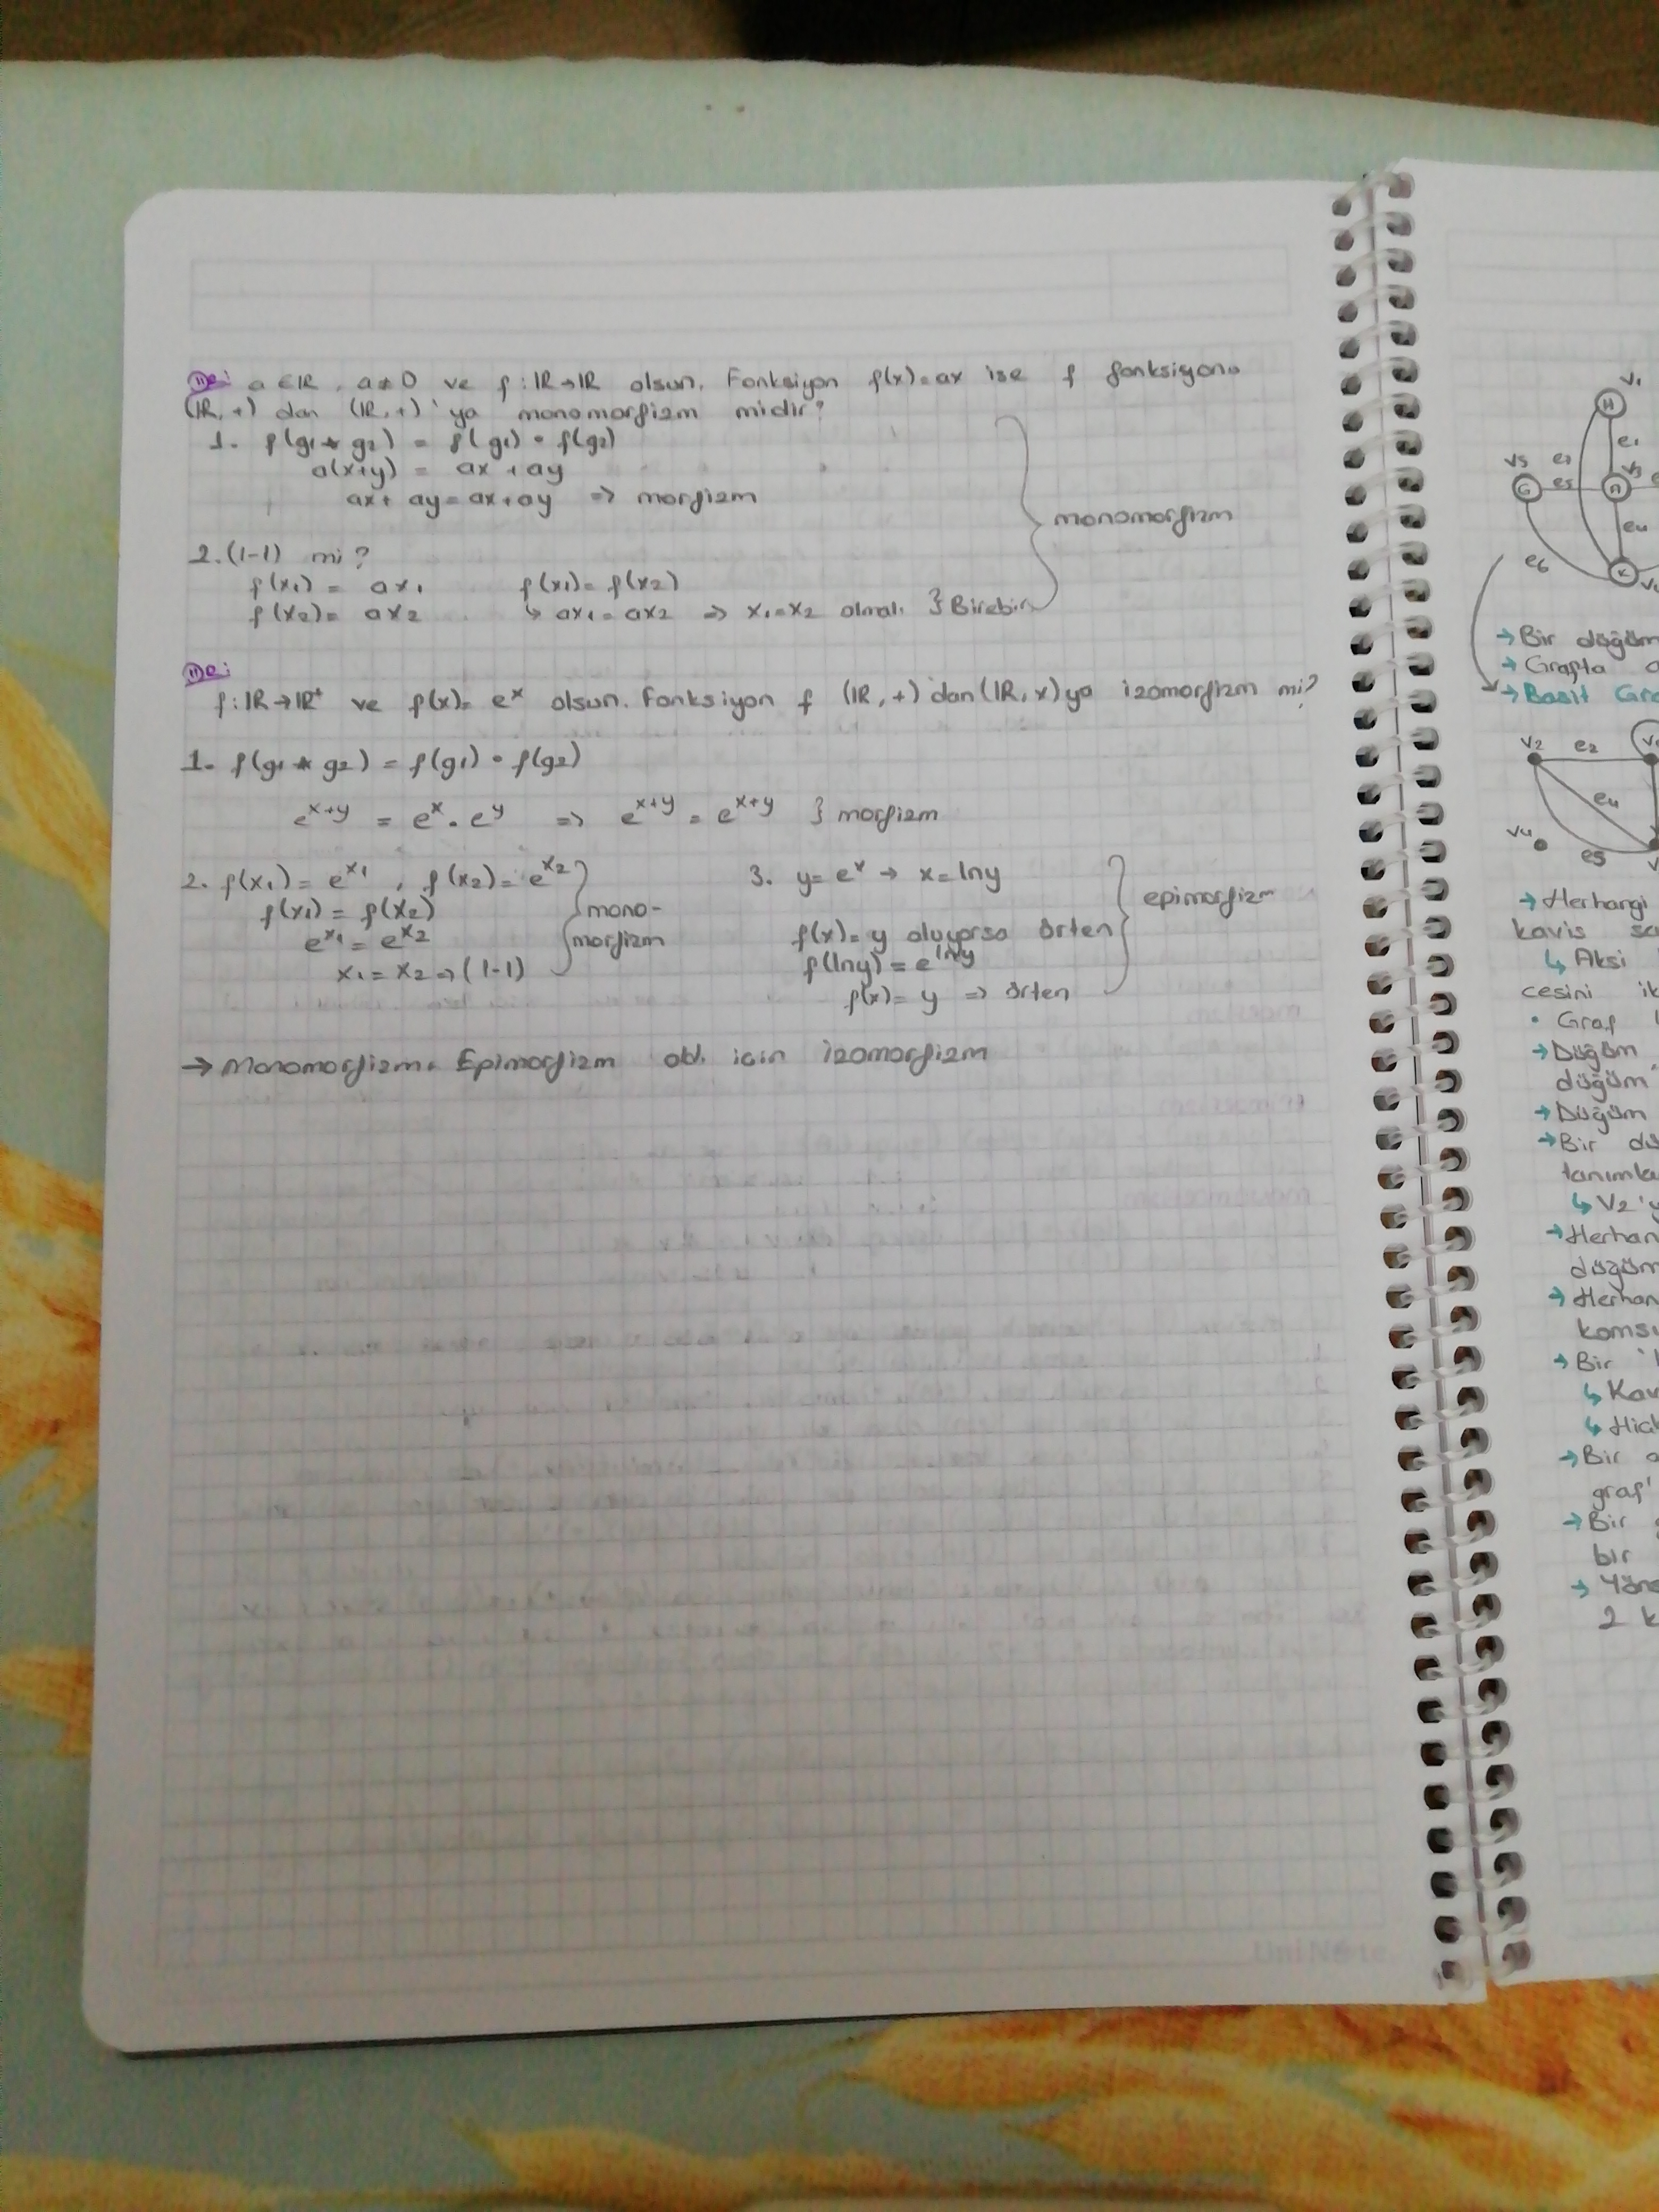 a∈IR, a≠0 ve f:IR→IR olsun. Fonksiyon f(x)=ax ise f fonksiyonu
(IR,+) dan (IR,+)'ya monomorfizm midir?
1. f(g1 * g2) = f(g1) • f(g2)
a(x+y) = ax + ay
ax + ay = ax + ay => morfizm
monomorfizm
2. (1-1) mi?
f(x1) = ax1 f(x1) = f(x2)
f(x2) = ax2 ↳ ax1 = ax2 => x1 = x2 olmalı } Birebir
f:IR→IR⁺ ve f(x) = eˣ olsun. Fonksiyon f (IR,+)'dan (IR,x)ya izomorfizm mi?
1. f(g1 * g2) = f(g1) • f(g2)
e^x+y = e^x . e^y => e^x+y = e^x+y } morfizm
2. f(x1) = e^x1 , f(x2) = e^x2
f(x1) = f(x2)
e^x1 = e^x2
x1 = x2 => (1-1)
mono-
morfizm
3. y = e^x → x = lny
f(x) = y oluyorsa örten
f(lny) = e^lny
f(x) = y => örten
epimorfizm
→ Monomorfizm, Epimorfizm old. için izomorfizm
V1
e1
V5
G
e5
V3
e4
e6
K
→ Bir düğüm
→ Grafta
→ Basit Gra
V2 e2
e4
V4
e5
→ Herhangi
kavis
↳ Aksi
cesini ik
• Graf
→ Düğüm
düğüm
→ Düğüm
→ Bir dü
tanımla
↳ V2'y
→ Herhan
düğüm
→ Herhan
komşu
→ Bir
↳ Kav
↳ Hiç
→ Bir
graf'
→ Bir
bir
→ Yön
2 k
UniNote